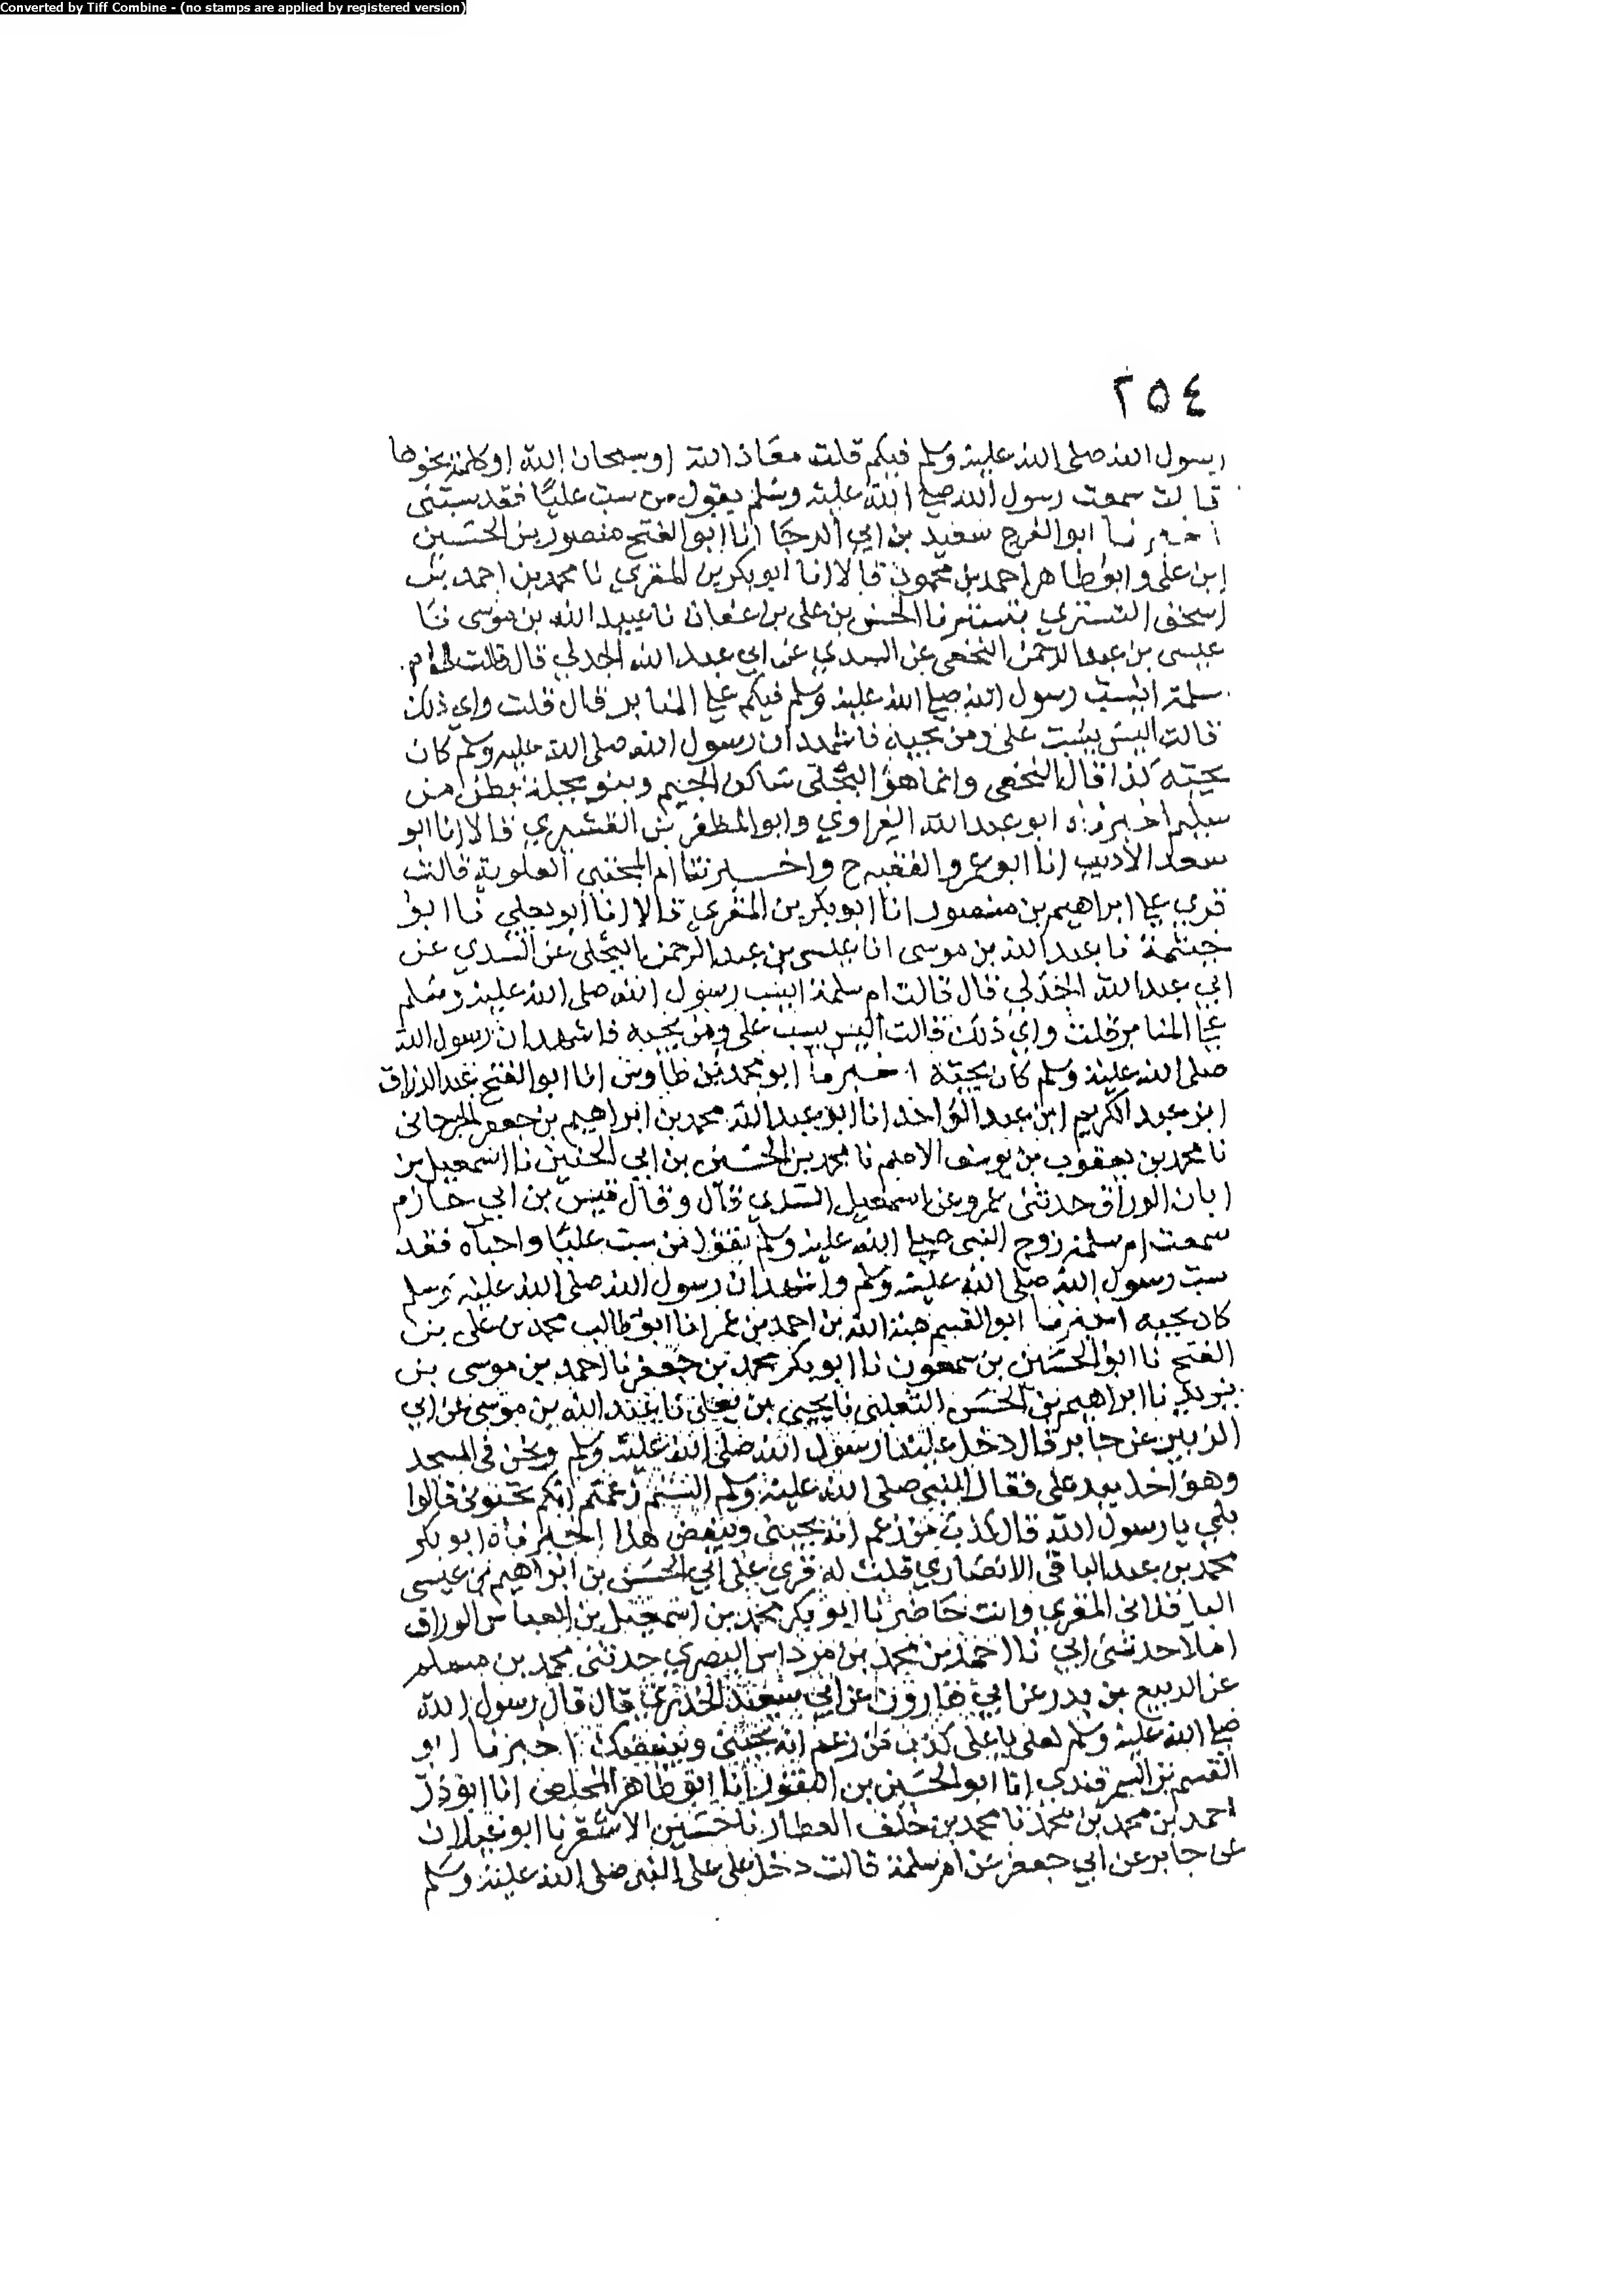 Converted by Tiff Combine - (no stamps are applied by registered version)
٢٥٤
رسول الله صلى الله عليه وسلم فيكم قلت معاذ الله او سبحان الله او كلمة نحوها
قالت سمعت رسول الله صلى الله عليه وسلم يقول من سب عليًا فقد سبنى
أخبرنا ابو الفرج سعيد بن ابي الرجا انا ابو الفتح منصور بن الحسين
ابن على وابو طاهر احمد بن محمود قالا انا ابو بكر بن المقري نا محمد بن احمد بن
اسحق التستري بتستر نا الحسن بن على بن عفان نا عبيد الله بن موسى نا
عيسى بن عبد الرحمن النخعى عن السدي عن ابي عبد الله الجدلي قال قالت لى ام
سلمة ايسب رسول الله صلى الله عليه وسلم فيكم على المنابر قال قلت واي ذلك
قالت اليس يسب على ومن يحبه فاشهد ان رسول الله صلى الله عليه وسلم كان
يحبه كذا قال النخعى وانما هو البجلى ساكن الجيم وبنو بجلة بطن من
سليم اخبرناه ابو عبد الله الفراوي وابو المظفر بن القشيري قالا انا ابو
سعد الأديب انا ابو عمرو الفقيه ح واخبرتنا ام المجتبى العلوية قالت
قري على ابراهيم بن منصور انا ابو بكر بن المقري قالا انا ابو يعلي نا ابو
خيثمة نا عبد الله بن موسى انا عيسى بن عبد الرحمن البجلى عن السدي عن
ابي عبد الله الجدلي قال قالت ام سلمة ايسب رسول الله صلى الله عليه وسلم
على المنابر قلت واي ذلك قالت اليس يسب على ومن يحبه فاشهد ان رسول الله
صلى الله عليه وسلم كان يحبه اخبرنا ابو محمد بن طاوس انا ابو الفتح عبد الرزاق
ابن عبد الكريم ابن عبد الواحد انا ابو عبد الله محمد بن ابراهيم بن جعفر الجرجانى
نا محمد بن يعقوب بن يوسف الاصم نا محمد بن الحسين بن ابي الحنين نا اسمعيل بن
ابان الوراق حدثنى عمرو عن اسمعيل السدي قال وقال قيس بن ابي حازم
سمعت ام سلمة زوج النبى صلى الله عليه وسلم تقول من سب عليًا واحباه فقد
سب رسول الله صلى الله عليه وسلم واشهد ان رسول الله صلى الله عليه وسلم
كان يحبه اخبرنا ابو القسم هبة الله بن احمد بن عمر انا ابو طالب محمد بن على بن
الفتح نا ابو الحسين بن سمعون نا ابو بكر محمد بن جعفر نا احمد بن موسى بن
نا ابراهيم بن الحسن التغلبى نا يحيى بن يعلى نا عبد الله بن موسى عن ابي
الزبير عن جابر قال دخل علينا رسول الله صلى الله عليه وسلم ونحن فى المسجد
وهو اخذ بيد على فقال النبى صلى الله عليه وسلم الستم زعمتم انكم تحبونى قالوا
بلى يا رسول الله قال كذب من زعم انه يحبنى ويبغض هذا اخبرناه ابو بكر
محمد بن عبد الباقى الانصاري قلت له قري على ابي الحسن بن ابراهيم بن عيسى
الباقلانى المقري وانت حاضر نا ابو بكر محمد بن اسمعيل بن العباس الوراق
املا حدثنى ابي نا احمد بن محمد بن مرداس البصري حدثنى محمد بن مسلم
عن الربيع بن بدر عن ابي هارون عن ابي سعيد الخدري قال قال رسول الله
صلى الله عليه وسلم لعلى يا على كذب من زعم انه يحبنى ويبغضك اخبرنا ابو
القسم بن السمرقندي انا ابو الحسين بن النقور انا ابو طاهر المخلص انا ابو ذر
احمد بن محمد بن محمد نا محمد بن خلف العطار نا حسين الاشقر نا ابو غيلان
عن جابر عن ابي جعفر عن ام سلمة قالت دخل على على النبى صلى الله عليه وسلم